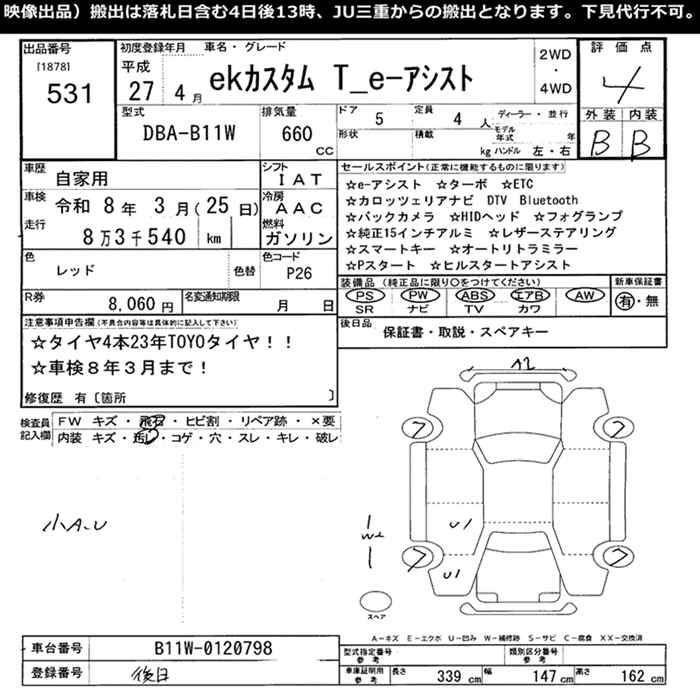 映像出品）搬出は落札日含む4日後13時、JU三重からの搬出となります。下見代行不可。
出品番号
[1878]
531
初度登録年月 車名・グレード
平成
27 4月
ekカスタム T_e-アシスト
2WD
・
4WD
評価点
4
外装 内装
B B
型式
DBA-B11W
排気量
660
CC
ドア 5
定員 4 人
ディーラー・並行
形状
積載
kg
モデル年式 年
ハンドル 左・右
車歴 自家用
車検 令和 8年 3月(25日)
走行 8万3千540 km
シフト
IAT
冷房
AAC
燃料
ガソリン
色 レッド
色替
色コード
P26
R券 8,060円
名変通知期限 月 日
セールスポイント(正常に機能するものに限ります)
☆e-アシスト ☆ターボ ☆ETC
☆カロッツェリアナビ DTV Bluetooth
☆バックカメラ ☆HIDヘッド ☆フォグランプ
☆純正15インチアルミ ☆レザーステアリング
☆スマートキー ☆オートリトラミラー
☆Pスタート ☆ヒルスタートアシスト
装備品(純正品に限り○をつけてください)
PS PW ABS エアB AW
SR ナビ TV カワ
新車保証書
有・無
後日品 保証書・取説・スペアキー
注意事項申告欄(不具合内容等は具体的に記入して下さい)
☆タイヤ4本23年TOYOタイヤ！！
☆車検8年3月まで！
修復歴 有〔箇所 〕
検査員記入欄
FW キズ・飛石・ヒビ割・リペア跡・×要
内装 キズ・汚レ・コゲ・穴・スレ・キレ・破レ
小A.U
A2
7
7
7
7
U1
U1
スペア
A-キズ E-エクボ U-凹み W-補修跡 S-サビ C-腐食 XX-交換済
車台番号 B11W-0120798
登録番号 後日
型式指定番号
参考
類別区分番号
参考
車庫証明用
参考
長さ 339 cm 幅 147 cm 高さ 162 cm